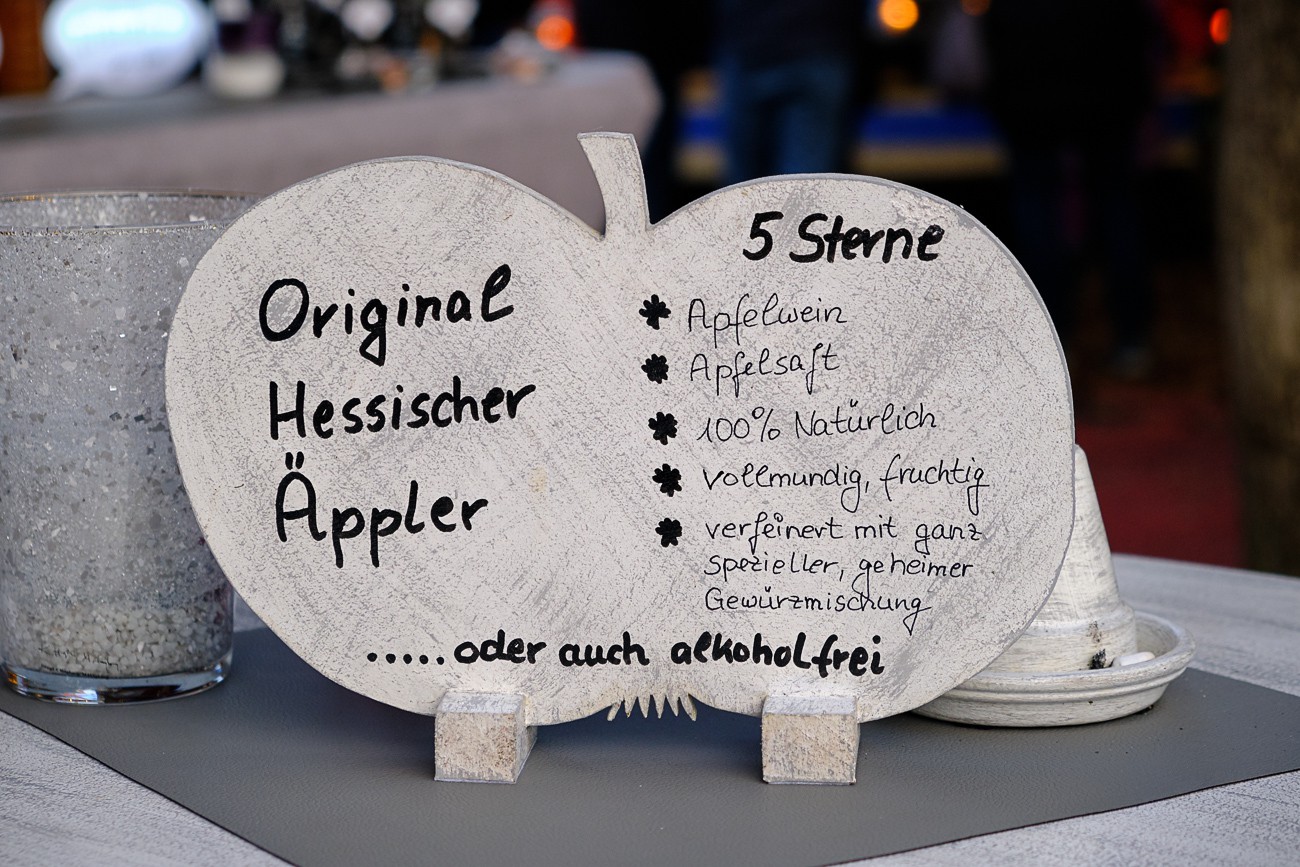 Original
Hessischer
Äppler
5 Sterne
Apfelwein
Apfelsaft
100% Natürlich
vollmundig, fruchtig
verfeinert mit ganz
spezieller, geheimer
Gewürzmischung
.....oder auch alkoholfrei